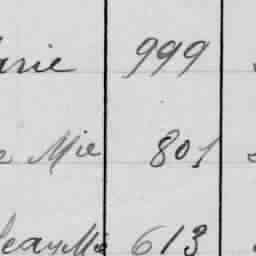 arie 999
e Mie 801
Jean Mie 613